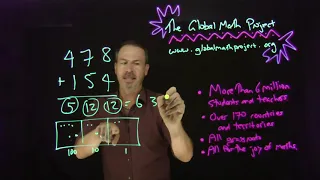 The Global Math Project
www.globalmathproject.org
478
+ 154
5 12 12 = 6 3
100 10 1
• More than 6 million
students and teachers
• Over 170 countries
and territories
• All grassroots
• All for the joy of maths